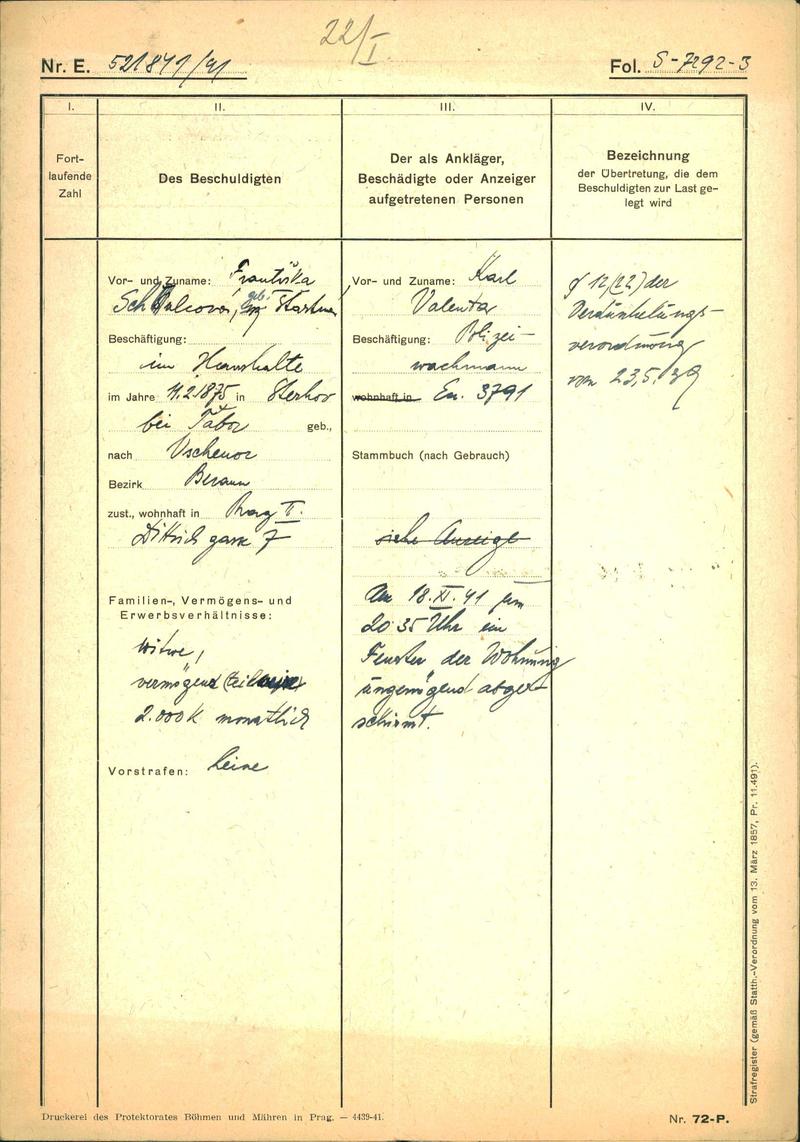 22/I
Nr. E. 521841/41
Fol. S-7292-3
I.
II.
III.
IV.
Fort-
laufende
Zahl
Des Beschuldigten
Der als Ankläger,
Beschädigte oder Anzeiger
aufgetretenen Personen
Bezeichnung
der Übertretung, die dem
Beschuldigten zur Last ge-
legt wird
Vor- und Zuname: Františka
geb.
Beschäftigung:
im Haushalte
im Jahre 11.2.1875 in
bei Tábor geb.,
nach Vschenor
Bezirk Beraun
zust., wohnhaft in Prag II.
Dittrichgasse 7
Familien-, Vermögens- und
Erwerbsverhältnisse:
Witwe,
vermögend
2.000 K monatlich
Vorstrafen: keine
Vor- und Zuname: Karl
Valenta
Beschäftigung: Polizei-
wachmann
wohnhaft in En. 3791
Stammbuch (nach Gebrauch)
siehe Anzeige
Am 18.XI.41 um
20 35 Uhr ein
Fenster der Wohnung
ungenügend abge-
schirmt.
§ 12/(22) der
Verdunkelungs-
verordnung
vom 23,5.39
Strafregister (gemäß Statth.-Verordnung vom 13. März 1857, Pr. 11.491).
Druckerei des Protektorates Böhmen und Mähren in Prag. — 4439-41.
Nr. 72-P.